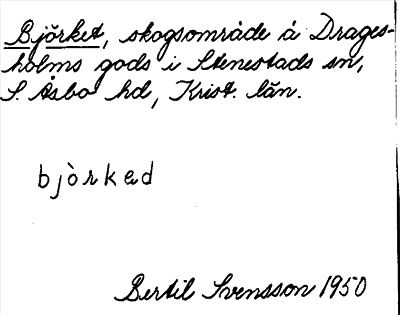 Björket, skogsområde å Drages-
holms gods i Stenestads sn,
S. Åsbo hd, Krist. län.
bjòrked
Bertil Svensson 1950